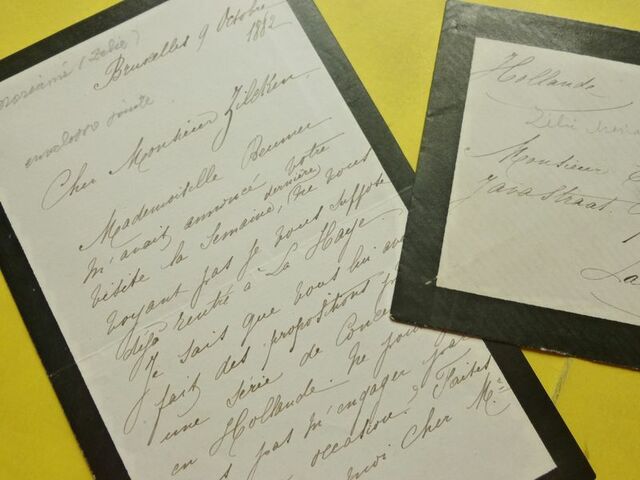 (Zelie)
Bruxelles 9 Octobre
1882
enveloppe jointe
Cher Monsieur Zilcken
Mademoiselle Beumer
m'avait annoncé votre
visite la semaine dernière, ne vous
voyant pas je vous suppose
déjà rentré à La Haye
Je sais que vous lui
fait des propositions
une série de
en Hollande. ne
pas m'engager
occasion. Faites
moi cher Mr
Hollande
Monsieur
Java Straat
La